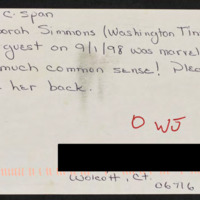 C-Span
orah Simmons (Washington Tim
guest on 9/1/98 was marvel
much common sense! Plea
her back.
O WJ
Wolcott, Ct.
06716